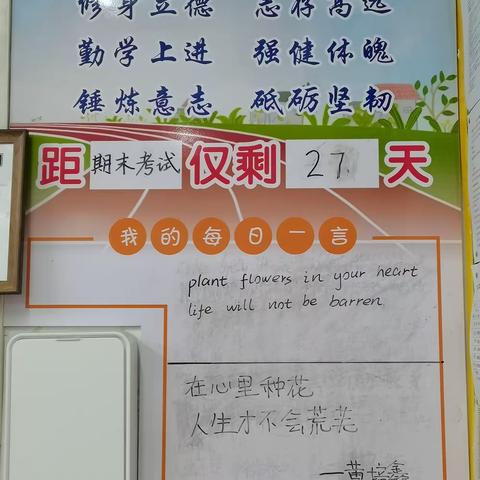 修身立德 志存高远
勤学上进 强健体魄
锤炼意志 砥砺坚韧
距期末考试仅剩27.天
我的每日一言
plant flowers in your heart
life will not be barren
在心里种花
人生才不会荒芜
—黄培鑫